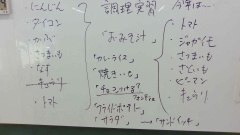 にんじん
ダイコン
かぶ
さつまいも
なす
キュウリ
トマト
調理実習
「おみそ汁」
「カレーライス」
「焼きいも」
「フライドポテト」
「サラダ」→「サンドイッチ」
今年は…
・トマト
・ジャガイモ
・さつまいも
・さといも
・ピーマン
・キュウリ